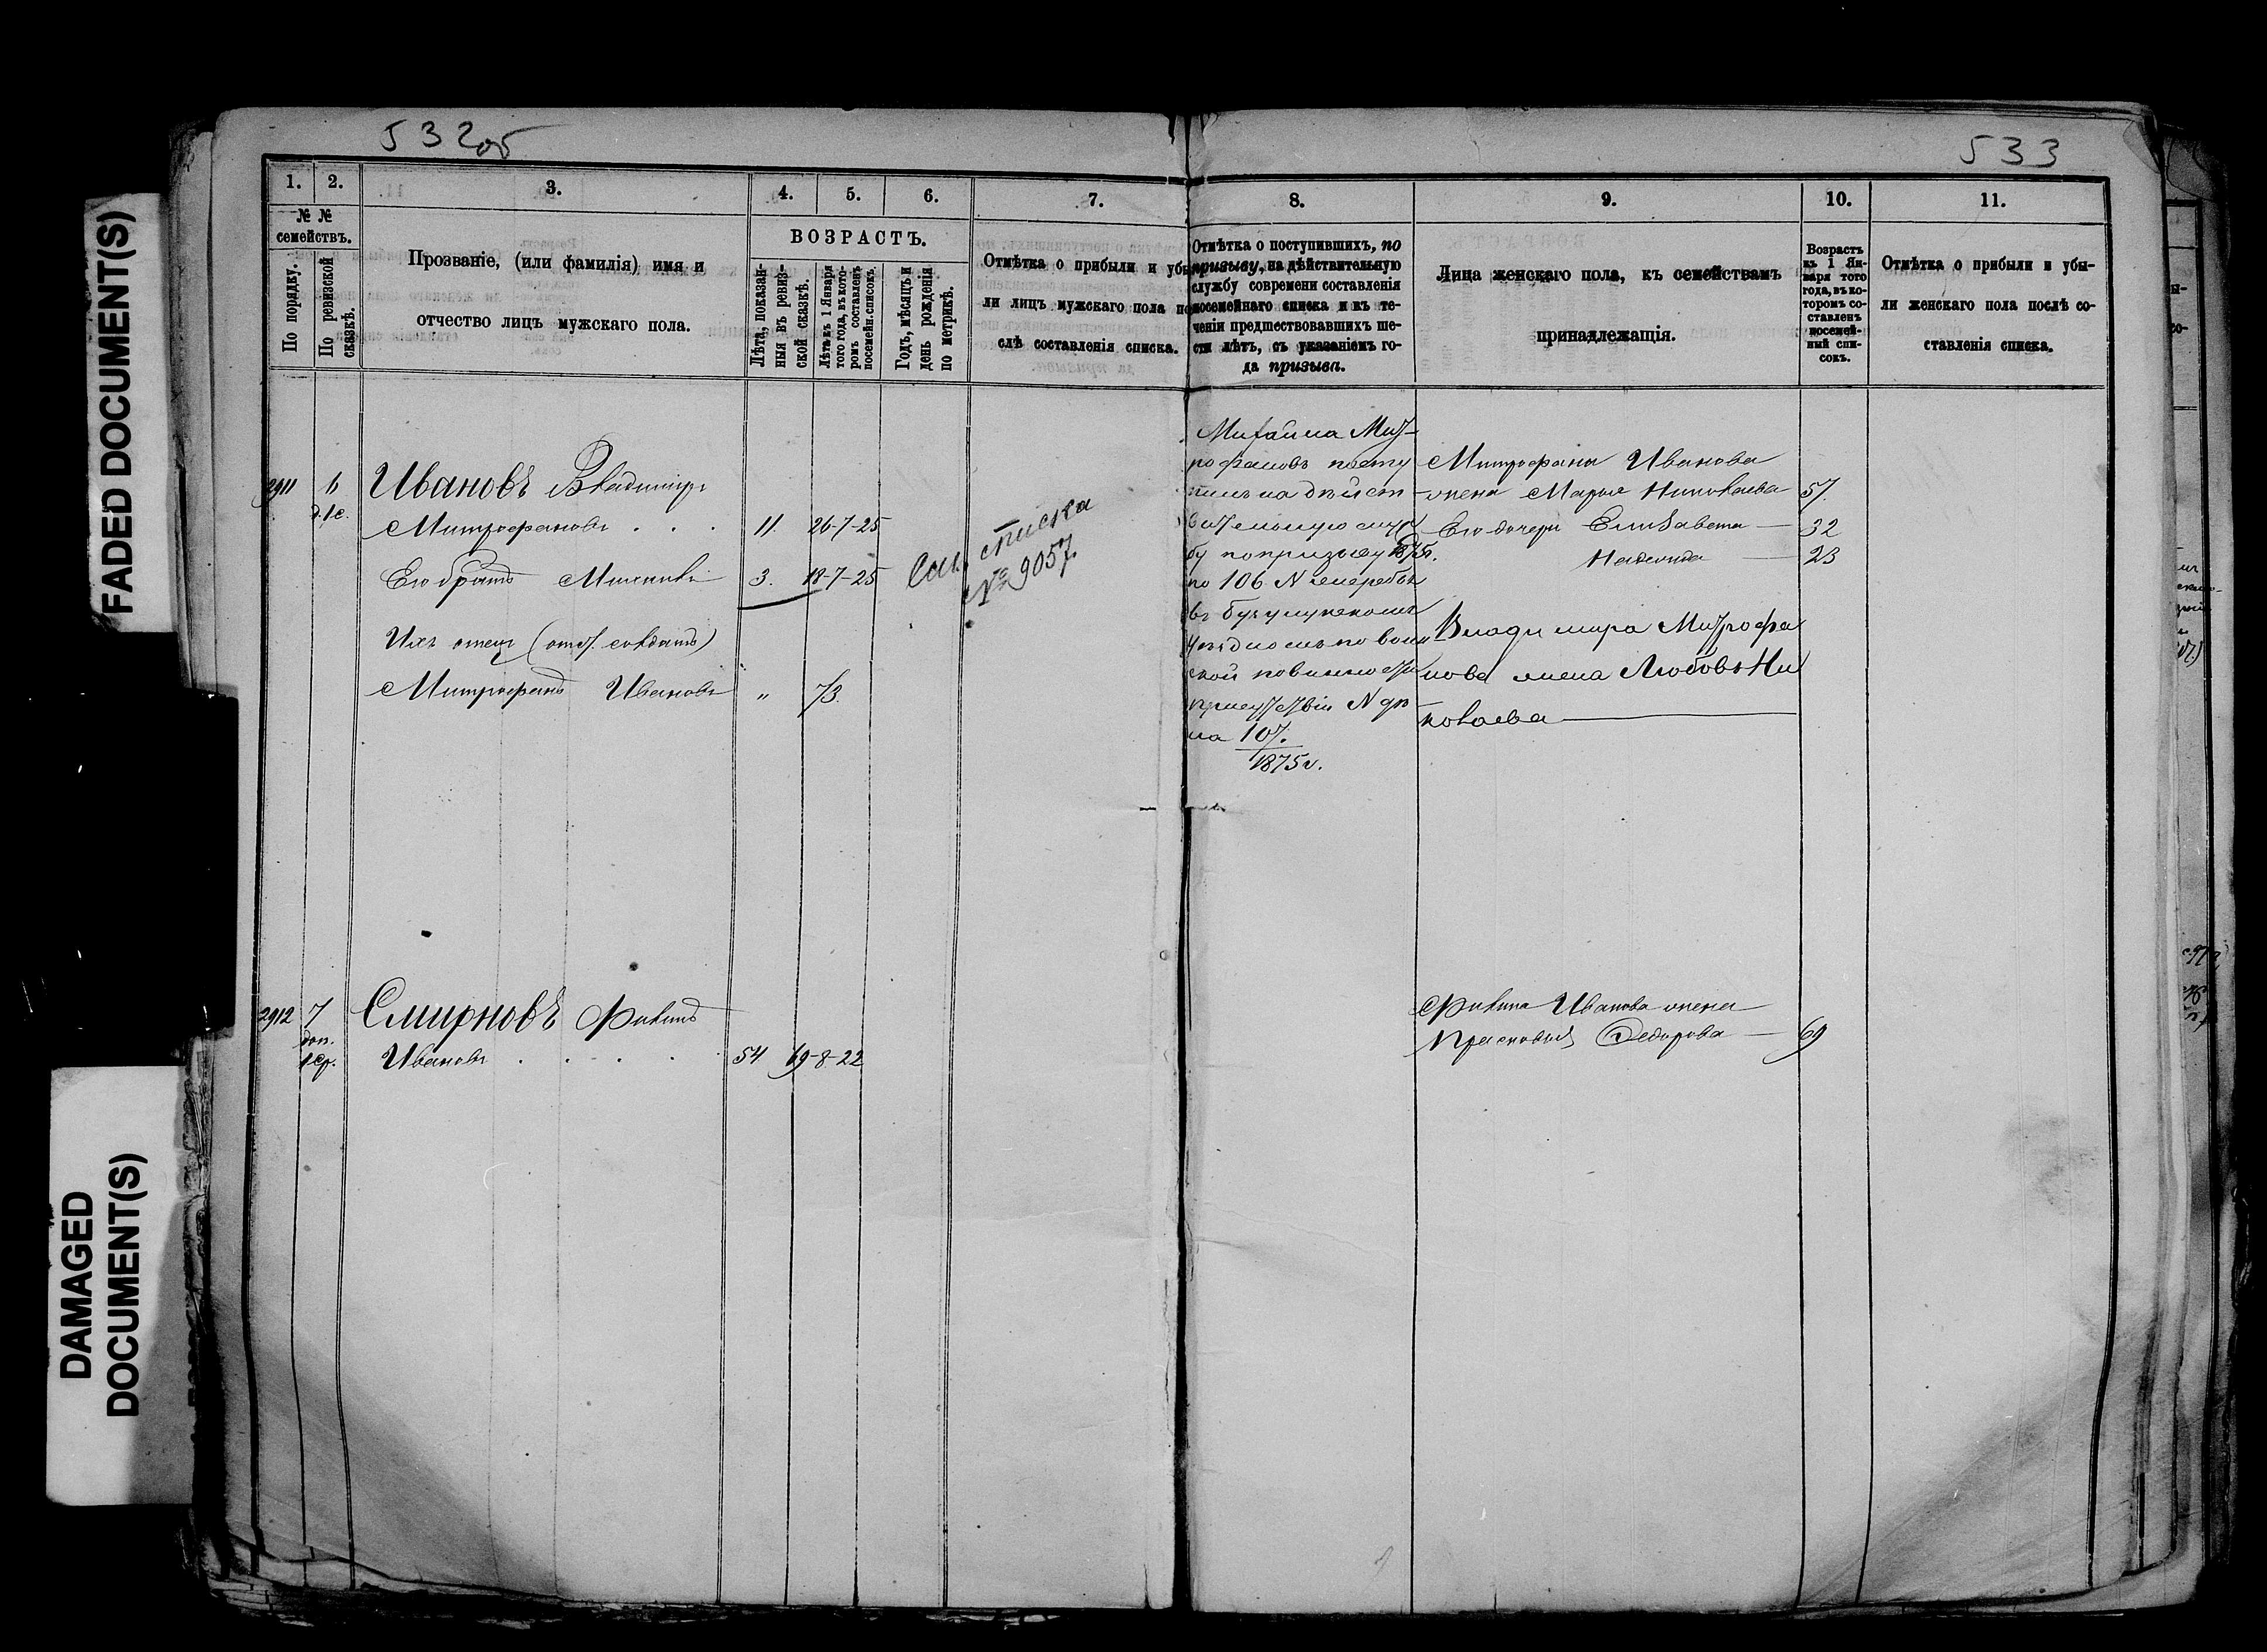 532об
533
FADED DOCUMENT(S)
DAMAGED
DOCUMENT(S)
1.
2.
3.
4.
5.
6.
7.
8.
9.
10.
11.
№ №
семействъ.
По порядку.
По ревизской
сказкѣ.
Прозваніе, (или фамилія) имя и
отчество лицъ мужскаго пола.
ВОЗРАСТЪ.
Лѣта, показан-
ныя въ ревиз-
ской сказкѣ.
Лѣтъ къ 1 Января
того года, въ кото-
ромъ составленъ
посемейн. списокъ.
Годъ, мѣсяцъ и
день рожденія
по метрикѣ.
Отмѣтка о прибыли и убы
ли лицъ мужскаго пола по
слѣ составленія списка.
Отмѣтка о поступившихъ, по
призыву, на дѣйствительную
службу современи составленія
посемейнаго списка и въ те-
ченіи предшествовавшихъ ше-
сти лѣтъ, съ указаніемъ го-
да призыва.
Лица женскаго пола, къ семействамъ
принадлежащія.
Возрастъ
къ 1 Ян-
варя того
года, въ ко-
торомъ со-
ставленъ
посемей-
ный спи-
сокъ.
Отмѣтка о прибыли и убы-
ли женскаго пола послѣ со-
ставленія списка.
2911 6 Ивановъ Владиміръ
Митрофановъ . . . 11. 26-7-25
Его братъ Михаилъ 3. 18-7-25
Ихъ отецъ (отст. солдатъ)
Митрофанъ Ивановъ " 73.
списка
№ 9057.
Михаила Мит-
рофановъ посту
пилъ на дѣйст
вительную служ
бу по призыву 1875г.
по 106 № жеребья
въ бузулукскомъ
уѣздномъ по воин
ской повинности
присутствіи №
на 107.
1875г.
Митрофана Иванова
жена Марья Николаева 57.
Его дочери Елизавета — 32
Надежда — 23
Владимира Митрофа
нова жена Любовь Ни
колаева
2912 7 Смирновъ Филипъ
доп.
1 ср. Ивановъ . . . . 54 19-8-22
Филипа Иванова жена
Прасковья Федорова — 69